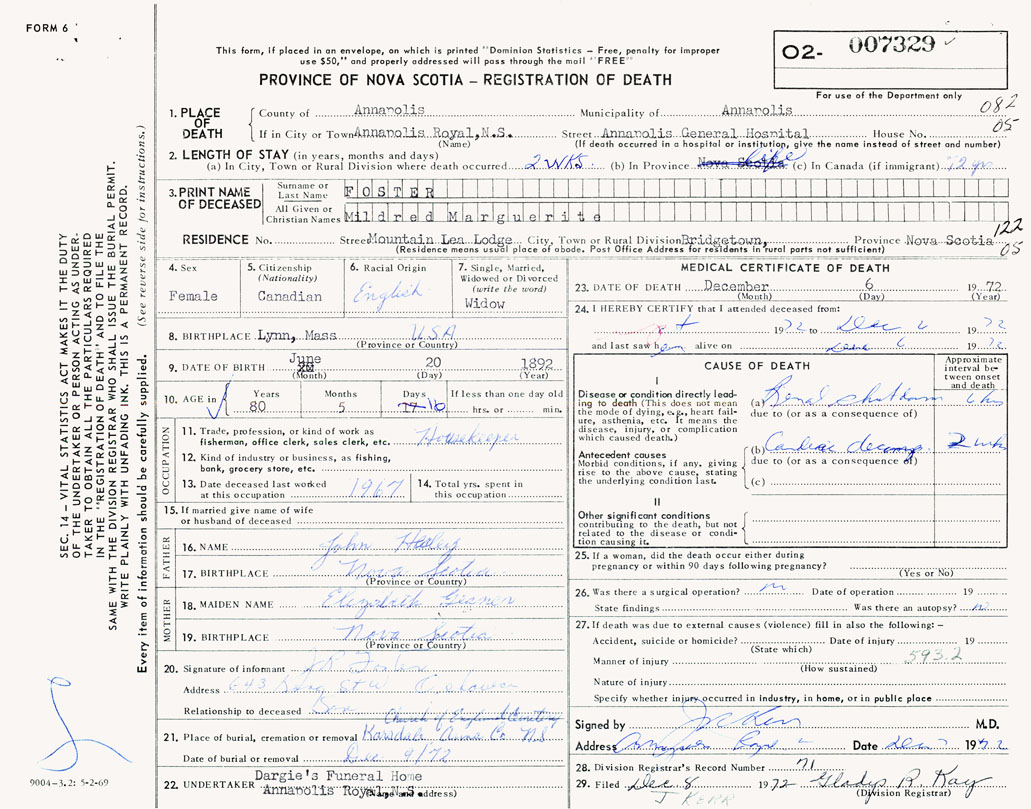 FORM 6
This form, if placed in an envelope, on which is printed "Dominion Statistics – Free, penalty for improper
use $50," and properly addressed will pass through the mail "FREE"
PROVINCE OF NOVA SCOTIA – REGISTRATION OF DEATH
O2- 007329
For use of the Department only
082
05
1. PLACE OF DEATH
County of Annapolis Municipality of Annapolis
If in City or Town Annapolis Royal, N.S. Street Annapolis General Hospital House No.
(Name) (If death occurred in a hospital or institution, give the name instead of street and number)
2. LENGTH OF STAY (in years, months and days)
(a) In City, Town or Rural Division where death occurred 2 WKS. (b) In Province Nova Scotia life (c) In Canada (if immigrant) 72 yrs
3. PRINT NAME OF DECEASED
Surname or Last Name FOSTER
All Given or Christian Names Mildred Marguerite
RESIDENCE No. Street Mountain Lea Lodge City, Town or Rural Division Bridgetown, Province Nova Scotia
(Residence means usual place of abode. Post Office Address for residents in rural parts not sufficient)
122
05
4. Sex
Female
5. Citizenship
(Nationality)
Canadian
6. Racial Origin
English
7. Single, Married,
Widowed or Divorced
(write the word)
Widow
8. BIRTHPLACE Lynn, Mass USA
(Province or Country)
9. DATE OF BIRTH June 20 1892
(Month) (Day) (Year)
10. AGE in
Years Months Days If less than one day old
80 5 16 hrs. or min.
OCCUPATION
11. Trade, profession, or kind of work as
fisherman, office clerk, sales clerk, etc. Housekeeper
12. Kind of industry or business, as fishing,
bank, grocery store, etc.
13. Date deceased last worked
at this occupation 1967
14. Total yrs. spent in
this occupation
15. If married give name of wife
or husband of deceased
FATHER
16. NAME John
17. BIRTHPLACE Nova Scotia
(Province or Country)
MOTHER
18. MAIDEN NAME Elizabeth Gesner
19. BIRTHPLACE Nova Scotia
(Province or Country)
20. Signature of informant
Address 643 King St W Oshawa
Relationship to deceased Son
Church of England Cemetery
21. Place of burial, cremation or removal Karsdale Anna Co N.S
Date of burial or removal Dec 9/72
22. UNDERTAKER Dargie's Funeral Home
Annapolis Royal, N.S.
(Name and address)
MEDICAL CERTIFICATE OF DEATH
23. DATE OF DEATH December 6 1972
(Month) (Day) (Year)
24. I HEREBY CERTIFY that I attended deceased from:
1972 to Dec 6 1972
and last saw her alive on Dec 6 1972
CAUSE OF DEATH
Approximate
interval be-
tween onset
and death
I
Disease or condition directly lead-
ing to death (This does not mean
the mode of dying, e.g., heart fail-
ure, asthenia, etc. It means the
disease, injury, or complication
which caused death.)
(a) Renal shutdown
due to (or as a consequence of)
Antecedent causes
Morbid conditions, if any, giving
rise to the above cause, stating
the underlying condition last.
(b) Cardiac decomp. 2 wks
due to (or as a consequence of)
(c)
II
Other significant conditions
contributing to the death, but not
related to the disease or condi-
tion causing it.
25. If a woman, did the death occur either during
pregnancy or within 90 days following pregnancy?
(Yes or No)
26. Was there a surgical operation? Date of operation 19
State findings Was there an autopsy?
27. If death was due to external causes (violence) fill in also the following: –
Accident, suicide or homicide? Date of injury 19
(State which)
593.2
Manner of injury
(How sustained)
Nature of injury
Specify whether injury occurred in industry, in home, or in public place
Signed by J Kerr M.D.
Address Annapolis Royal Date Dec 7 1972
28. Division Registrar's Record Number 71
29. Filed Dec. 8 1972 Gladys R. Kay
(Division Registrar)
J KERR
SEC. 14 – VITAL STATISTICS ACT MAKES IT THE DUTY
OF THE UNDERTAKER OR PERSON ACTING AS UNDER-
TAKER TO OBTAIN ALL THE PARTICULARS REQUIRED
IN THE "REGISTRATION OF DEATH" AND TO FILE THE
SAME WITH THE DIVISION REGISTRAR WHO SHALL ISSUE THE BURIAL PERMIT.
WRITE PLAINLY WITH UNFADING INK. THIS IS A PERMANENT RECORD.
Every item of information should be carefully supplied. (See reverse side for instructions.)
9004-3.2: 5-2-69